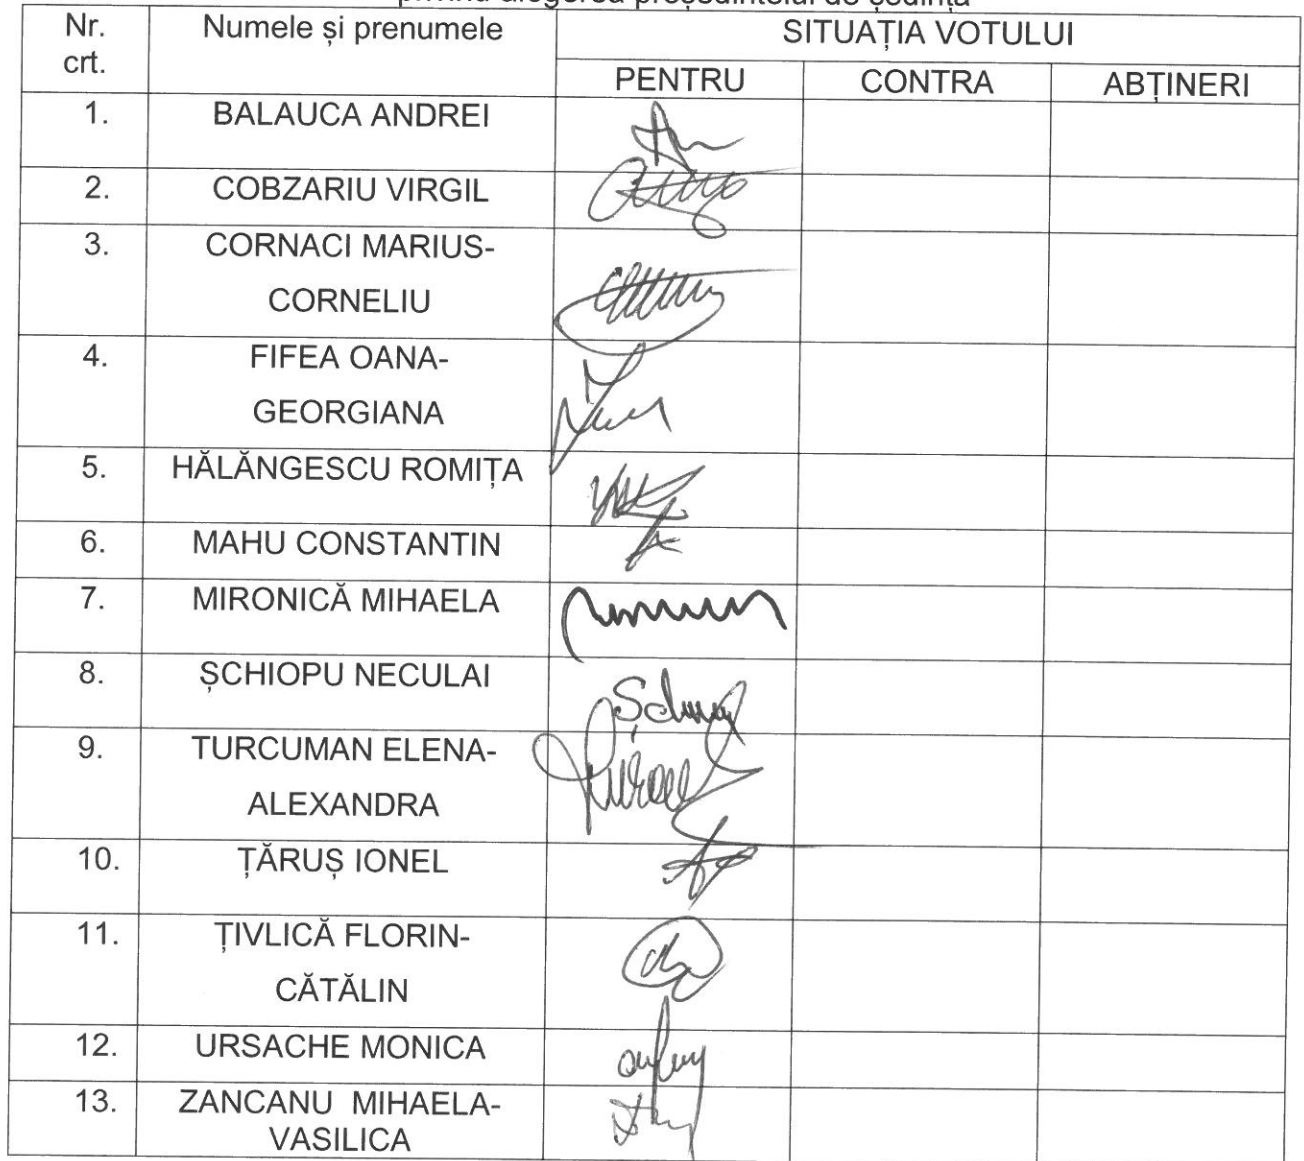 privind alegerea președintelui de ședință
Nr. crt. Numele și prenumele SITUAȚIA VOTULUI
PENTRU CONTRA ABȚINERI
1. BALAUCA ANDREI
2. COBZARIU VIRGIL
3. CORNACI MARIUS-
CORNELIU
4. FIFEA OANA-
GEORGIANA
5. HĂLĂNGESCU ROMIȚA
6. MAHU CONSTANTIN
7. MIRONICĂ MIHAELA
8. ȘCHIOPU NECULAI
9. TURCUMAN ELENA-
ALEXANDRA
10. ȚĂRUȘ IONEL
11. ȚIVLICĂ FLORIN-
CĂTĂLIN
12. URSACHE MONICA
13. ZANCANU MIHAELA-
VASILICA